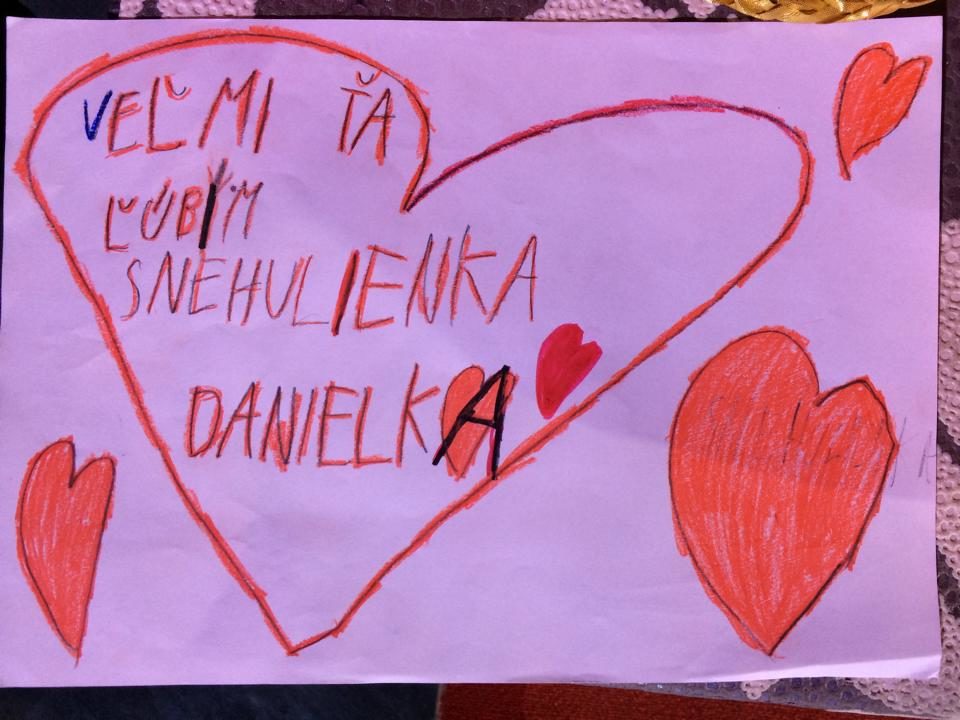 VEĽMI ŤA
ĽÚBIM
SNEHULIENKA
DANIELKA